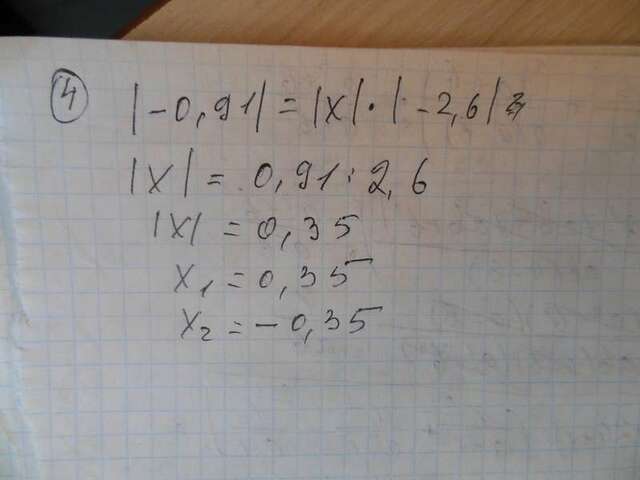 4 |-0,91| = |x| · |-2,6|
|x| = 0,91 : 2,6
|x| = 0,35
x₁ = 0,35
x₂ = -0,35